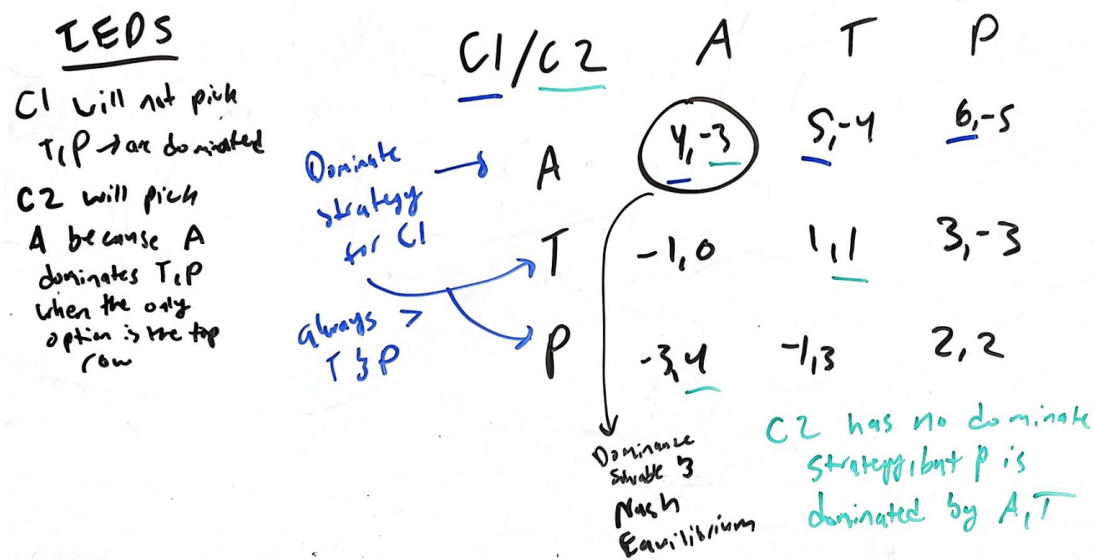 IEDS
C1 will not pick
T,P → are dominated
C2 will pick
A because A
dominates T,P
when the only
option is the top
row
C1/C2 A T P
Dominate
strategy
for C1
always >
T & P
A 4,-3 5,-4 6,-5
T -1,0 1,1 3,-3
P -3,4 -1,3 2,2
Dominance
Solvable &
Nash
Equilibrium
C2 has no dominate
strategy, but P is
dominated by A,T